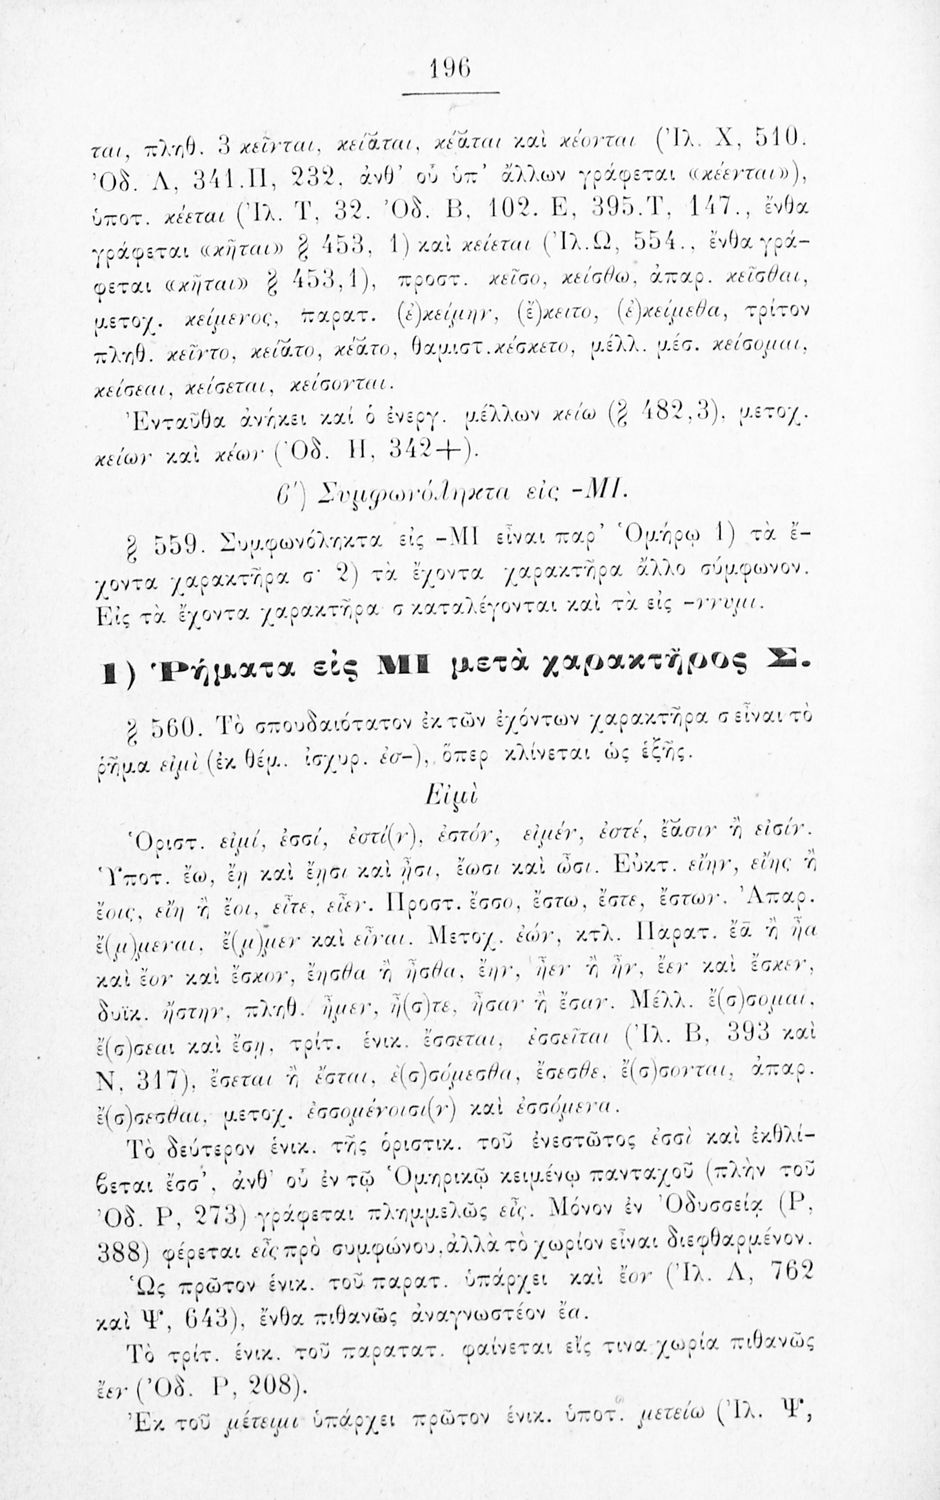 196
ται, πληθ. 3 κεῖνται, κείᾰται, κέᾰται καὶ κέονται (Ἰλ. Χ, 510.
Ὀδ. Λ, 341.Π, 232, ἀνθ' οὗ ὑπ' ἄλλων γράφεται «κέενται»),
ὑποτ. κέεται (Ἰλ. Τ, 32. Ὀδ. Β, 102. Ε, 395.Τ, 147., ἔνθα
γράφεται «κῆται» § 453, 1) καὶ κείεται (Ἰλ.Ω, 554., ἔνθα γρά-
φεται «κῆται» § 453,1), προστ. κεῖσο, κείσθω, ἀπαρ. κεῖσθαι,
μετοχ. κείμενος, παρατ. (ἐ)κείμην, (ἔ)κειτο, (ἐ)κείμεθα, τρίτον
πληθ. κεῖντο, κείᾰτο, κέᾰτο, θαμιστ.κέσκετο, μέλλ. μέσ. κείσομαι,
κείσεαι, κείσεται, κείσονται.
Ἐνταῦθα ἀνήκει καί ὁ ἐνεργ. μέλλων κείω (§ 482,3), μετοχ.
κείων καὶ κέων (Ὀδ. Η, 342+).
ϐ′) Συμφωνόληκτα εἰς -ΜΙ.
§ 559. Συμφωνόληκτα εἰς -ΜΙ εἶναι παρ' Ὁμήρῳ 1) τὰ ἔ-
χοντα χαρακτῆρα σ· 2) τὰ ἔχοντα χαρακτῆρα ἄλλο σύμφωνον.
Εἰς τὰ ἔχοντα χαρακτῆρα σ καταλέγονται καὶ τὰ εἰς -ννυμι.
1) Ῥήματα εἰς ΜΙ μετὰ χαρακτῆρος Σ.
§ 560. Τὸ σπουδαιότατον ἐκ τῶν ἐχόντων χαρακτῆρα σ εἶναι τὸ
ῥῆμα εἰμὶ (ἐκ θέμ. ἰσχυρ. ἐσ-), ὅπερ κλίνεται ὡς ἑξῆς.
Εἰμὶ
Ὁριστ. εἰμί, ἐσσί, ἐστί(ν), ἐστόν, εἰμέν, ἐστέ, ἔᾱσιν ἢ εἰσίν.
Ὑποτ. ἔω, ἔῃ καὶ ἔῃσι καὶ ᾖσι, ἔωσι καὶ ὦσι. Εὐκτ. εἴην, εἴης ἢ
ἔοις, εἴη ἢ ἔοι, εἶτε, εἶεν. Προστ. ἔσσο, ἔστω, ἔστε, ἔστων. Ἀπαρ.
ἔ(μ)μεναι, ἔ(μ)μεν καὶ εἶναι. Μετοχ. ἐών, κτλ. Παρατ. ἔᾱ ἢ ἦα
καὶ ἔον καὶ ἔσκον, ἔησθα ἢ ἦσθα, ἔην, ἦεν ἢ ἦν, ἔεν καὶ ἔσκεν,
δυϊκ. ἤστην, πληθ. ἦμεν, ἦ(σ)τε, ἦσαν ἢ ἔσαν. Μέλλ. ἔ(σ)σομαι,
ἔ(σ)σεαι καὶ ἔσῃ, τρίτ. ἑνικ. ἔσσεται, ἐσσεῖται (Ἰλ. Β, 393 καὶ
Ν, 317), ἔσεται ἢ ἔσται, ἐ(σ)σόμεσθα, ἔσεσθε, ἔ(σ)σονται, ἀπαρ.
ἔ(σ)σεσθαι, μετοχ. ἐσσομένοισι(ν) καὶ ἐσσόμενα.
Τὸ δεύτερον ἑνικ. τῆς ὁριστικ. τοῦ ἐνεστῶτος ἐσσὶ καὶ ἐκθλί-
ϐεται ἔσσ', ἀνθ' οὗ ἐν τῷ Ὁμηρικῷ κειμένῳ πανταχοῦ (πλὴν τοῦ
Ὀδ. Ρ, 273) γράφεται πλημμελῶς εἶς. Μόνον ἐν Ὀδυσσείᾳ (Ρ,
388) φέρεται εἶς πρὸ συμφώνου, ἀλλὰ τὸ χωρίον εἶναι διεφθαρμένον.
Ὡς πρῶτον ἑνικ. τοῦ παρατ. ὑπάρχει καὶ ἔον (Ἰλ. Λ, 762
καὶ Ψ, 643), ἔνθα πιθανῶς ἀναγνωστέον ἔα.
Τὸ τρίτ. ἑνικ. τοῦ παρατατ. φαίνεται εἴς τινα χωρία πιθανῶς
ἔεν (Ὀδ. Ρ, 208).
Ἐκ τοῦ μέτειμι ὑπάρχει πρῶτον ἑνικ. ὑποτ. μετείω (Ἰλ. Ψ,